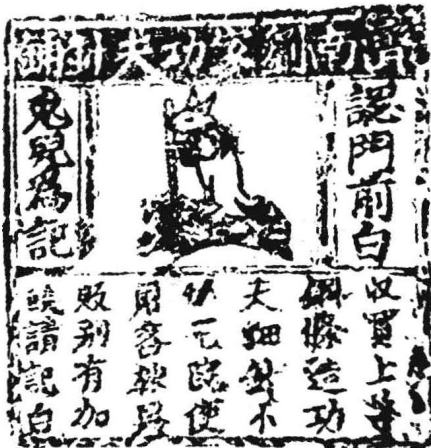 濟南劉家功夫針鋪
認門前白
兔兒爲記
收買上等
鋼條造功
夫細針不
使
用客爲
販别有加
饒請記白